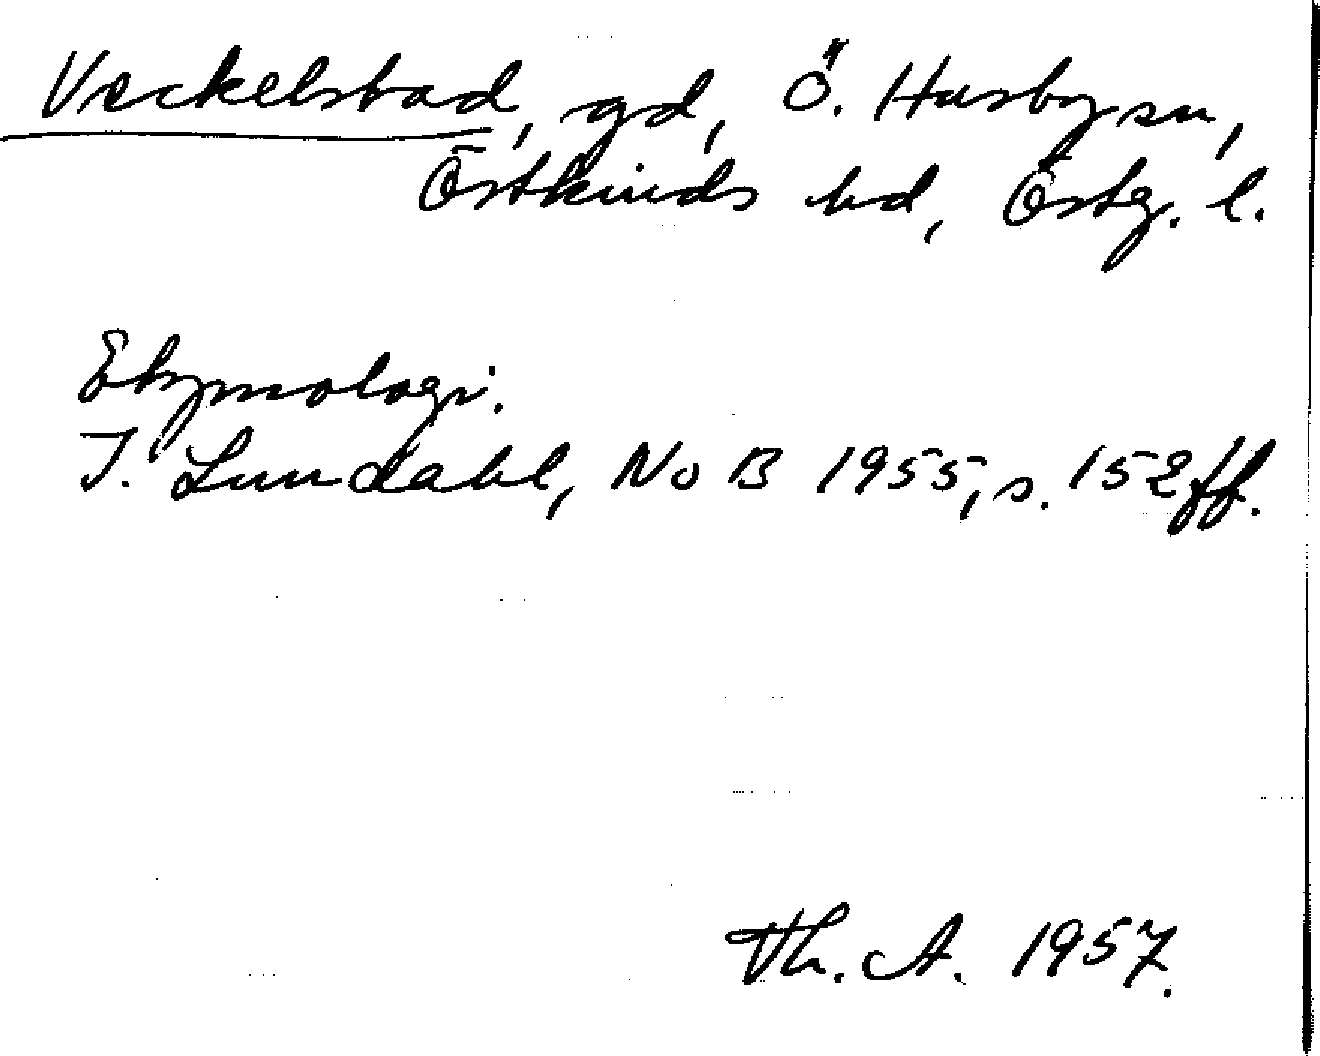 Veckelstad, gd, Ö. Husby sn,
Östkinds hd, Östg. l.
Etymologi.
I. Lundahl, NoB 1955, s. 152 ff.
Th. A. 1957.